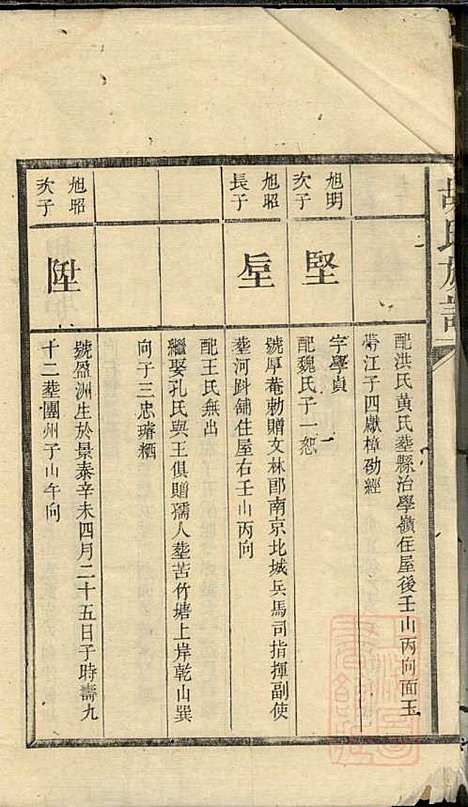 胡氏族譜
配洪氏黃氏塟縣治學嶺住屋後壬山丙向面玉
帶江子四獻樟勐經
旭明
次子
堅
字學貞
配魏氏子一恕
旭昭
長子
垕
號厚菴勅贈文林郎南京北城兵馬司指揮副使
塟河斜舖住屋右壬山丙向
配王氏無出
繼娶孔氏與王俱贈孺人塟苦竹塘上岸乾山巽
向子三忠璿栖
旭昭
次子
陞
號盈洲生於景泰辛未四月二十五日子時壽九
十二塟團州子山午向